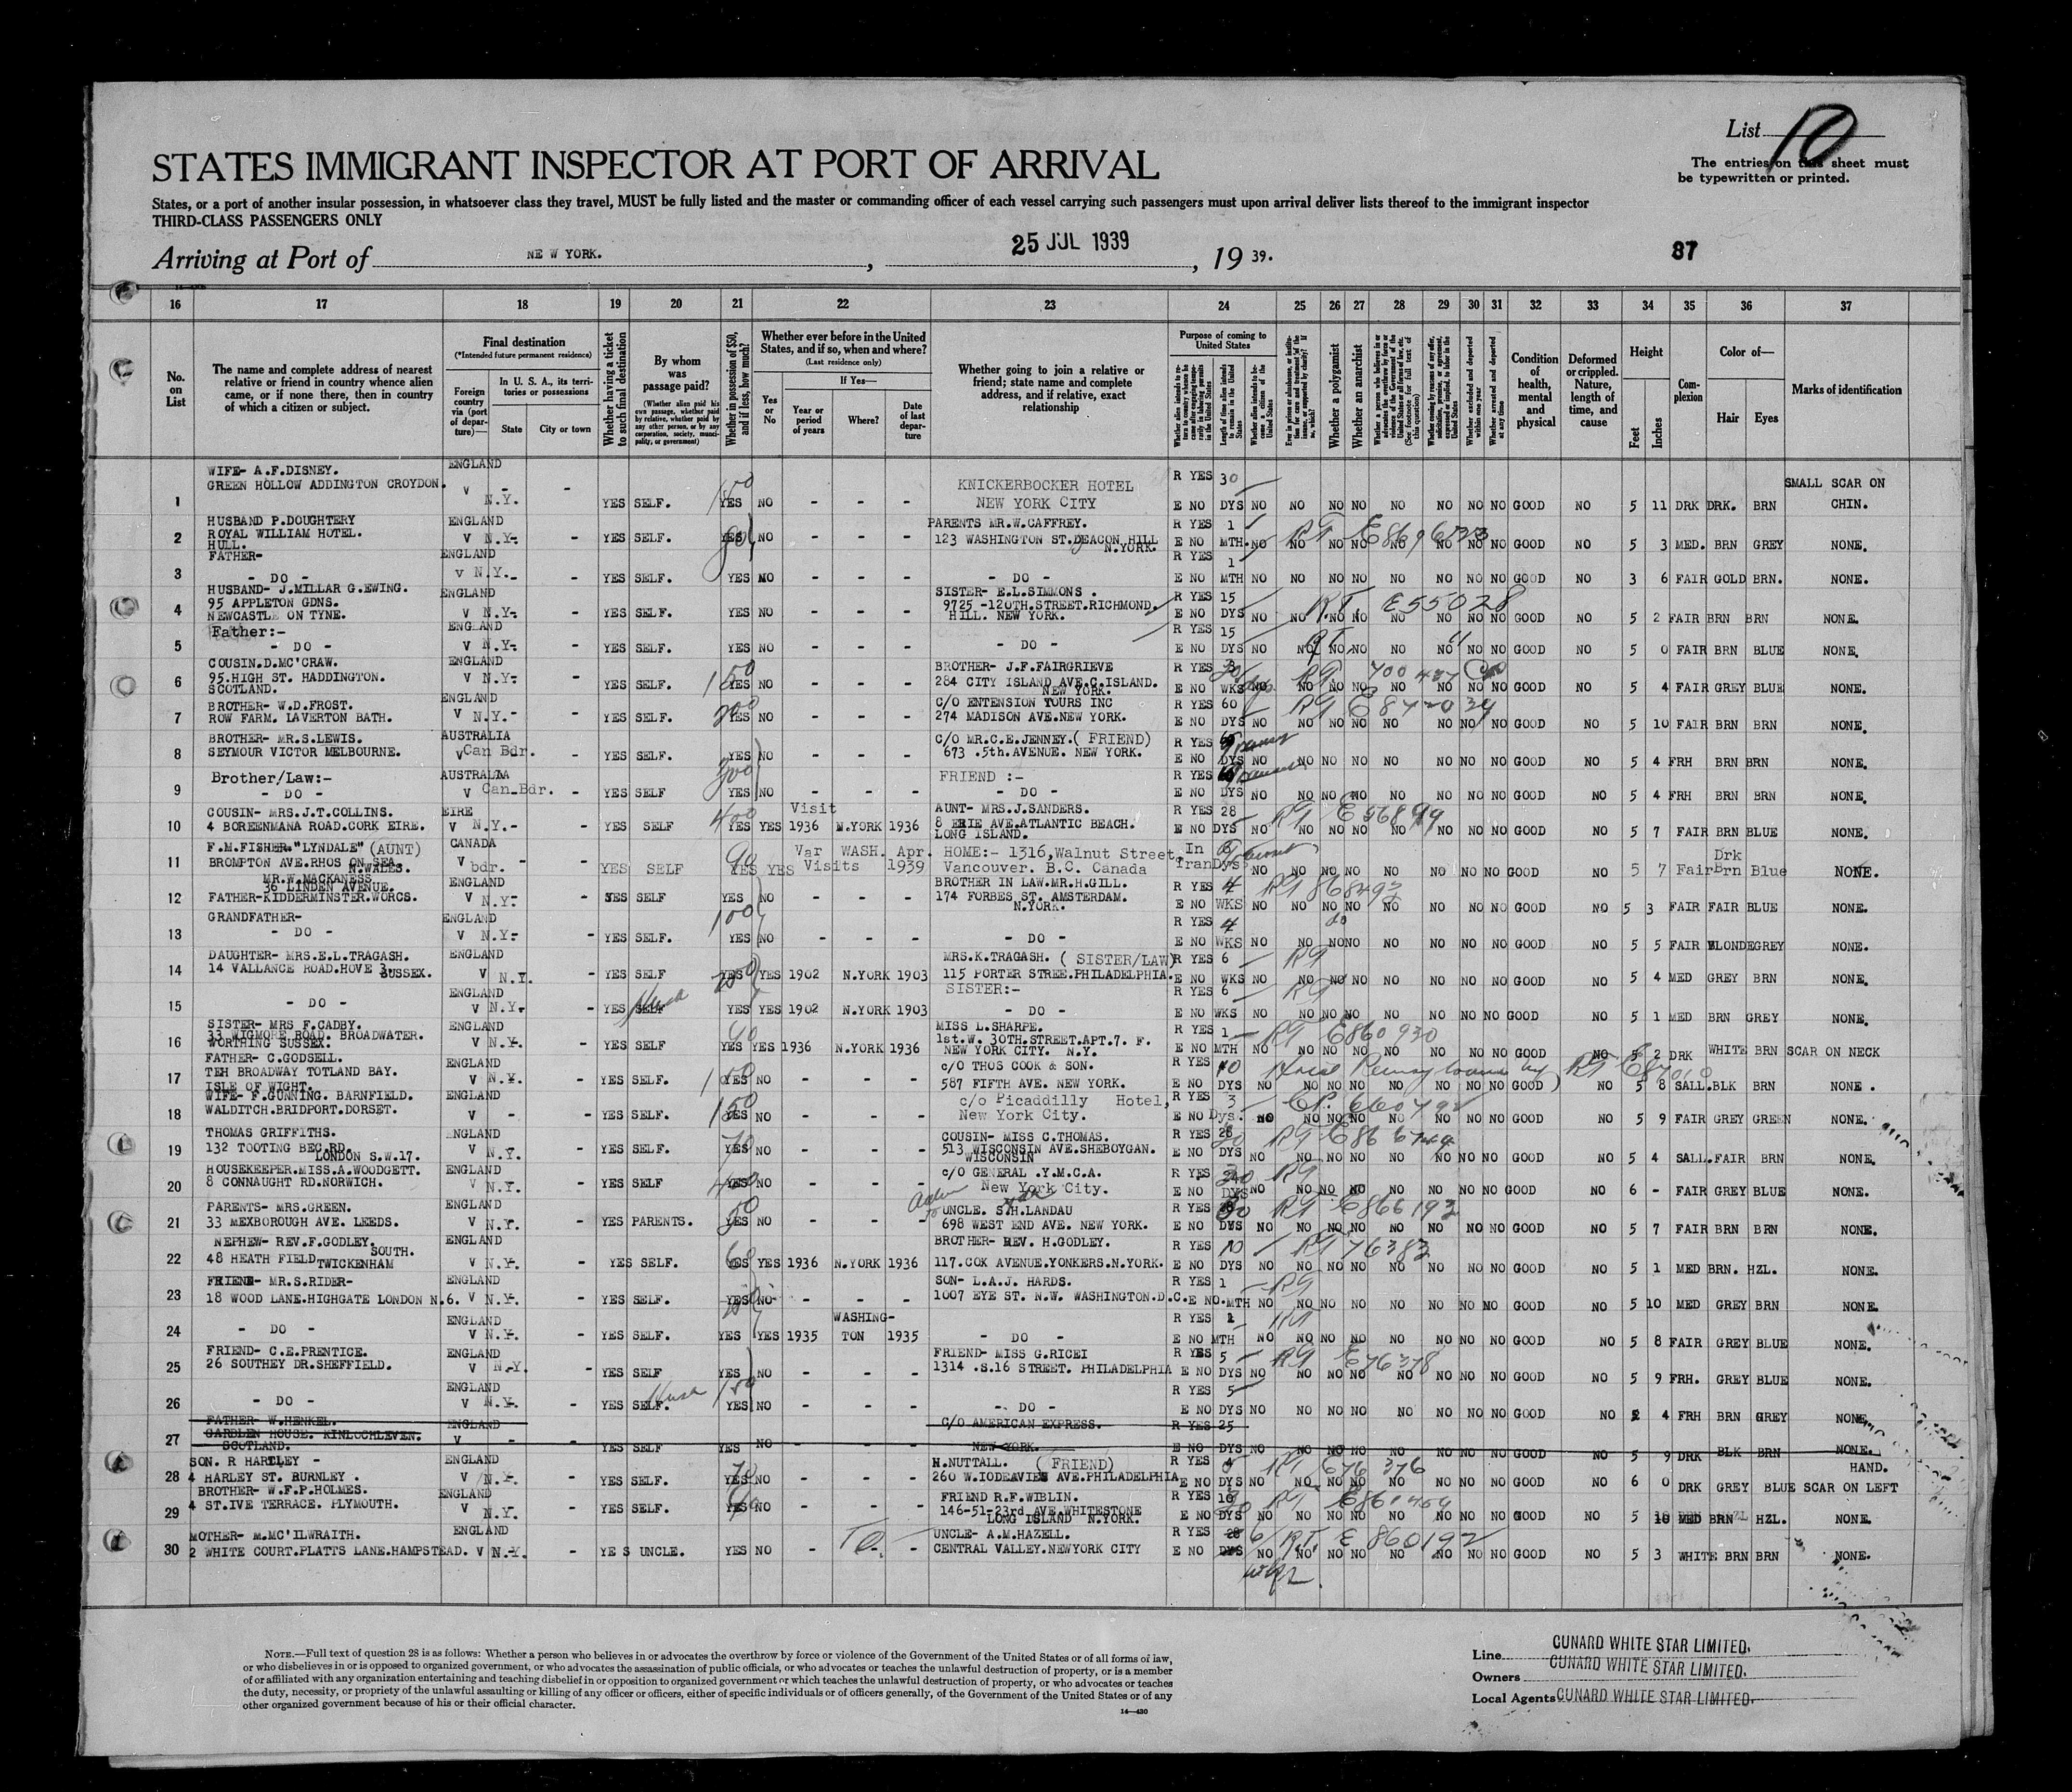 List 10
The entries on this sheet must
be typewritten or printed.
STATES IMMIGRANT INSPECTOR AT PORT OF ARRIVAL
States, or a port of another insular possession, in whatsoever class they travel, MUST be fully listed and the master or commanding officer of each vessel carrying such passengers must upon arrival deliver lists thereof to the immigrant inspector
THIRD-CLASS PASSENGERS ONLY
Arriving at Port of NEW YORK. , 25 JUL 1939 , 19 39. 87
16 17 18 19 20 21 22 23 24 25 26 27 28 29 30 31 32 33 34 35 36 37
No. on List
The name and complete address of nearest relative or friend in country whence alien came, or if none there, then in country of which a citizen or subject.
Final destination
(*Intended future permanent residence)
Foreign country via (port of departure)—
In U. S. A., its territories or possessions
State City or town
Whether having a ticket to such final destination
By whom was passage paid?
(Whether alien paid his own passage, whether paid by relative, whether paid by any other person, or by any corporation, society, municipality, or government)
Whether in possession of $50, and if less, how much?
Whether ever before in the United States, and if so, when and where?
(Last residence only)
Yes or No
If Yes—
Year or period of years
Where?
Date of last departure
Whether going to join a relative or friend; state name and complete address, and if relative, exact relationship
Purpose of coming to United States
Length of time alien intends to remain in the United States
Whether alien intends to become a citizen of the United States
Whether a polygamist
Whether an anarchist
Whether excluded and deported within one year
Whether arrested and deported at any time
Condition of health, mental and physical
Deformed or crippled. Nature, length of time, and cause
Height
Feet Inches
Complexion
Color of—
Hair Eyes
Marks of identification
WIFE- A.F.DISNEY. ENGLAND R YES 30 SMALL SCAR ON
GREEN HOLLOW ADDINGTON CROYDON. V - - KNICKERBOCKER HOTEL
1 N.Y. YES SELF. YES NO - - - NEW YORK CITY E NO DYS NO NO NO NO NO NO NO NO GOOD NO 5 11 DRK DRK. BRN CHIN.
HUSBAND P.DOUGHTERY ENGLAND PARENTS MR.W.CAFFREY. R YES 1
2 ROYAL WILLIAM HOTEL. V N.Y. - YES SELF. YES NO - - - 123 WASHINGTON ST.DEACON HILL E NO MTH. NO NO NO NO NO NO NO NO GOOD NO 5 3 MED. BRN GREY NONE.
HULL. N.YORK.
FATHER- ENGLAND R YES 1
3 - DO - V N.Y. - YES SELF. YES NO - - - - DO - E NO MTH NO NO NO NO NO NO NO NO GOOD NO 3 6 FAIR GOLD BRN. NONE.
HUSBAND- J.MILLAR G.EWING. ENGLAND SISTER- E.L.SIMMONS . R YES 15
4 95 APPLETON GDNS. V N.Y. - YES SELF. YES NO - - - 9725 -120TH.STREET.RICHMOND. R.T. E55028
NEWCASTLE ON TYNE. HILL. NEW YORK. E NO DYS NO NO NO NO NO NO NO NO GOOD NO 5 2 FAIR BRN BRN NONE.
Father:- ENGLAND R YES 15
5 - DO - V N.Y. - YES SELF. YES NO - - - - DO - E NO DYS NO NO NO NO NO NO NO NO GOOD NO 5 0 FAIR BRN BLUE NONE.
COUSIN.D.MC'CRAW. ENGLAND BROTHER- J.F.FAIRGRIEVE R YES
6 95.HIGH ST. HADDINGTON. V N.Y. - YES SELF. 150 YES NO - - - 284 CITY ISLAND AVE.C.ISLAND.
SCOTLAND. NEW YORK. E NO WKS NO NO NO NO NO NO NO NO GOOD NO 5 4 FAIR GREY BLUE NONE.
BROTHER- W.D.FROST. ENGLAND C/O ENTENSION TOURS INC R YES 60
7 ROW FARM. LAVERTON BATH. V N.Y. - YES SELF. 200 YES NO - - - 274 MADISON AVE.NEW YORK. E NO DYS NO NO NO NO NO NO NO NO GOOD NO 5 10 FAIR BRN BRN NONE.
BROTHER- MR.S.LEWIS. AUSTRALIA C/O MR.C.E.JENNEY.( FRIEND) R YES
8 SEYMOUR VICTOR MELBOURNE. V Can Bdr. YES SELF. YES NO - - - 673 .5th.AVENUE. NEW YORK. E NO DYS NO NO NO NO NO NO NO NO GOOD NO 5 4 FRH BRN BRN NONE.
Brother/Law:- AUSTRALIA FRIEND :- R YES
9 - DO - V Can Bdr. - YES SELF 300 YES NO - - - - DO - E NO DYS NO NO NO NO NO NO NO NO GOOD NO 5 4 FRH BRN BRN NONE.
COUSIN- MRS.J.T.COLLINS. EIRE Visit AUNT- MRS.J.SANDERS. R YES 28
10 4 BOREENMANA ROAD.CORK EIRE. V N.Y. - YES SELF 400 YES YES 1936 N.YORK 1936 8 ERIE AVE.ATLANTIC BEACH. E NO DYS NO NO NO NO NO NO NO NO GOOD NO 5 7 FAIR BRN BLUE NONE.
LONG ISLAND.
F.M.FISHER."LYNDALE" (AUNT) CANADA Var WASH. Apr. HOME:- 1316,Walnut Street, In
11 BROMPTON AVE.RHOS ON SEA. V bdr. - YES SELF 90 YES YES Visits 1939 Vancouver. B.C. Canada Tran Dys NO NO NO NO NO NO NO NO GOOD NO 5 7 Fair Drk Brn Blue NONE.
N.WALES.
MR.W.MACKANESS. ENGLAND BROTHER IN LAW.MR.H.GILL. R YES 4
36 LINDEN AVENUE.
12 FATHER-KIDDERMINSTER.WORCS. V N.Y. - YES SELF YES NO - - - 174 FORBES ST. AMSTERDAM. E NO WKS NO NO NO NO NO NO NO NO GOOD NO 5 3 FAIR FAIR BLUE NONE.
N.YORK.
GRANDFATHER- ENGLAND 100 R YES 4
13 - DO - V N.Y. - YES SELF. YES NO - - - - DO - E NO WKS NO NO NO NO NO NO NO NO GOOD NO 5 5 FAIR BLONDE GREY NONE.
DAUGHTER- MRS.E.L.TRAGASH. ENGLAND MRS.K.TRAGASH. ( SISTER/LAW) R YES 6
14 14 VALLANCE ROAD.HOVE 3. SUSSEX. V N.Y. - YES SELF YES YES 1902 N.YORK 1903 115 PORTER STREE.PHILADELPHIA. E NO WKS NO NO NO NO NO NO NO NO GOOD NO 5 4 MED GREY BRN NONE.
ENGLAND SISTER:- R YES 6
15 - DO - V N.Y. - YES SELF YES YES 1902 N.YORK 1903 - DO - E NO WKS NO NO NO NO NO NO NO NO GOOD NO 5 1 MED BRN GREY NONE.
SISTER- MRS F.CADBY. ENGLAND 90 MISS L.SHARPE. R YES 1 RT E860930
16 33 WIGMORE ROAD. BROADWATER. V N.Y. - YES SELF YES YES 1936 N.YORK 1936 1st.W. 30TH.STREET.APT.7. F.
WORTHING SUSSEX. NEW YORK CITY. N.Y. E NO MTH NO NO NO NO NO NO NO NO GOOD NO 5 2 DRK WHITE BRN SCAR ON NECK
FATHER- C.GODSELL. ENGLAND c/o THOS COOK & SON. R YES
17 TEH BROADWAY TOTLAND BAY. V N.Y. - YES SELF. 150 YES NO - - - 587 FIFTH AVE. NEW YORK. E NO DYS NO NO NO NO NO NO NO NO GOOD NO 5 8 SALL. BLK BRN NONE .
ISLE OF WIGHT.
WIFE- F.GUNNING. BARNFIELD. ENGLAND c/o Picaddilly Hotel, R YES 3
18 WALDITCH.BRIDPORT.DORSET. V - - YES SELF. 150 YES NO - - - New York City. E NO Dys. NO NO NO NO NO NO NO NO GOOD NO 5 9 FAIR GREY GREEN NONE.
THOMAS GRIFFITHS. ENGLAND 70 COUSIN- MISS C.THOMAS. R YES
19 132 TOOTING BEC.RD. V N.Y. - YES SELF. YES NO - - - 513 WISCONSIN AVE.SHEBOYGAN. E NO DYS NO NO NO NO NO NO NO NO GOOD NO 5 4 SALL. FAIR BRN NONE.
LONDON S.W.17. WISCONSIN
HOUSEKEEPER.MISS.A.WOODGETT. ENGLAND c/o GENERAL .Y.M.C.A. R YES
20 8 CONNAUGHT RD.NORWICH. V N.Y. - YES SELF 400 YES NO - - - New York City. E NO DYS NO NO NO NO NO NO NO NO GOOD NO 6 - FAIR GREY BLUE NONE.
PARENTS- MRS.GREEN. ENGLAND 50 UNCLE. S.H.LANDAU R YES
21 33 MEXBOROUGH AVE. LEEDS. V N.Y. - YES PARENTS. YES NO - - - 698 WEST END AVE. NEW YORK. E NO DYS NO NO NO NO NO NO NO NO GOOD NO 5 7 FAIR BRN BRN NONE.
NEPHEW- REV.F.GODLEY. ENGLAND BROTHER- REV. H.GODLEY. R YES 10 RT 76383
22 48 HEATH FIELD SOUTH. TWICKENHAM V N.Y. - YES SELF. 60 YES YES 1936 N.YORK 1936 117.COX AVENUE.YONKERS.N.YORK. E NO DYS NO NO NO NO NO NO NO NO GOOD NO 5 1 MED BRN. HZL. NONE.
FRIEND- MR.S.RIDER- ENGLAND SON- L.A.J. HARDS. R YES 1
23 18 WOOD LANE.HIGHGATE LONDON N.6. V N.Y. - YES SELF. YES NO - - - 1007 EYE ST. N.W. WASHINGTON.D.C. E NO. MTH NO NO NO NO NO NO NO NO GOOD NO 5 10 MED GREY BRN NONE.
ENGLAND WASHING- R YES 1
24 - DO - V N.Y. - YES SELF. YES YES 1935 TON 1935 - DO - E NO MTH NO NO NO NO NO NO NO NO GOOD NO 5 8 FAIR GREY BLUE NONE.
FRIEND- C.E.PRENTICE. ENGLAND FRIEND- MISS G.RICEI R YES 5 RT E76378
25 26 SOUTHEY DR.SHEFFIELD. V N.Y. - YES SELF YES NO - - - 1314 .S.16 STREET. PHILADELPHIA E NO DYS NO NO NO NO NO NO NO NO GOOD NO 5 9 FRH. GREY BLUE NONE.
ENGLAND 150 R YES 5
26 - DO - V N.Y. - YES SELF. YES NO - - - - DO - E NO DYS NO NO NO NO NO NO NO NO GOOD NO 5 4 FRH BRN GREY NONE.
FATHER- W.HENKEL. ENGLAND C/O AMERICAN EXPRESS. R YES 25
27 GARBLEN HOUSE. KINLOCHLEVEN. V - - YES SELF YES NO - - - NEW YORK. E NO DYS NO NO NO NO NO NO NO NO GOOD NO 5 9 DRK BLK BRN NONE.
SCOTLAND.
SON. R HARTLEY - ENGLAND H.NUTTALL. (FRIEND) R YES RT E76376 HAND.
28 4 HARLEY ST. BURNLEY . V N.Y. - YES SELF. 70 YES NO - - - 260 W.IODEAVIES AVE.PHILADELPHIA E NO DYS NO NO NO NO NO NO NO NO GOOD NO 6 0 DRK GREY BLUE SCAR ON LEFT
BROTHER- W.F.P.HOLMES. ENGLAND FRIEND R.F.WIBLIN. R YES
29 4 ST.IVE TERRACE. PLYMOUTH. V N.Y. - YES SELF. YES NO - - - 146-51-23rd AVE.WHITESTONE E NO DYS NO NO NO NO NO NO NO NO GOOD NO 5 10 MED BRN HZL. NONE.
LONG ISLAND N.YORK.
MOTHER- M.MC'ILWRAITH. ENGLAND To. UNCLE- A.M.HAZELL. R YES 28 6 R.T. E 860192
30 2 WHITE COURT.PLATTS LANE.HAMPSTEAD. V N.Y. - YES UNCLE. YES NO - - - CENTRAL VALLEY.NEWYORK CITY E NO DYS NO NO NO NO NO NO NO NO GOOD NO 5 3 WHITE BRN BRN NONE.
wks.
NOTE.—Full text of question 28 is as follows: Whether a person who believes in or advocates the overthrow by force or violence of the Government of the United States or of all forms of law,
or who disbelieves in or is opposed to organized government, or who advocates the assassination of public officials, or who advocates or teaches the unlawful destruction of property, or is a member
of or affiliated with any organization entertaining and teaching disbelief in or opposition to organized government or which teaches the unlawful destruction of property, or who advocates or teaches
the duty, necessity, or propriety of the unlawful assaulting or killing of any officer or officers, either of specific individuals or of officers generally, of the Government of the United States or of any
other organized government because of his or their official character.
14—430
Line CUNARD WHITE STAR LIMITED.
Owners CUNARD WHITE STAR LIMITED.
Local Agents CUNARD WHITE STAR LIMITED.